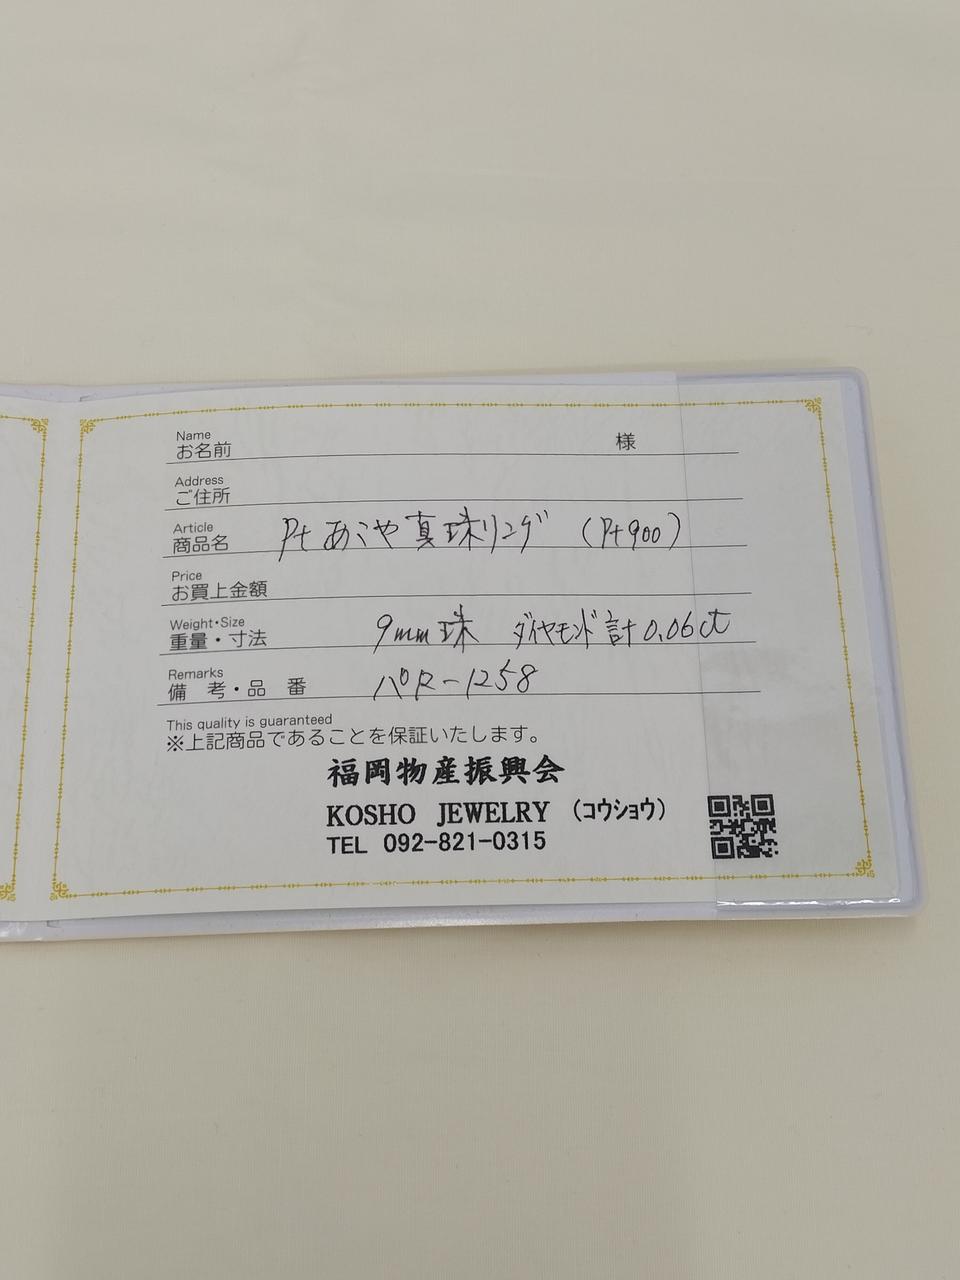 Name
お名前 様
Address
ご住所
Article
商品名 Ptあこや真珠リング (Pt900)
Price
お買上金額
Weight・Size
重量・寸法 9mm珠 ダイヤモンド計0.06ct
Remarks
備考・品番 パR-1258
This quality is guaranteed
※上記商品であることを保証いたします。
福岡物産振興会
KOSHO JEWELRY (コウショウ)
TEL 092-821-0315